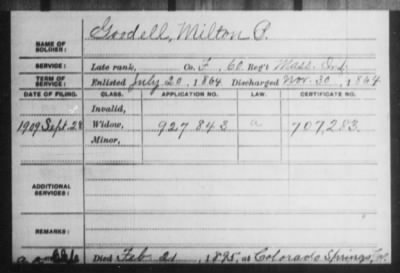 Goodell, Milton P.
NAME OF SOLDIER:
SERVICE: Late rank, Co. F, 60 Reg't Mass. Inf.
TERM OF SERVICE: Enlisted July 20, 1864 Discharged Nov. 30, 1864
DATE OF FILING. CLASS. APPLICATION NO. CERTIFICATE NO.
Invalid,
1909 Sept. 28 Widow, 927 843 a 707,283.
Minor,
ADDITIONAL SERVICES:
REMARKS:
Died Feb. 21, 1895, at Colorado Springs,